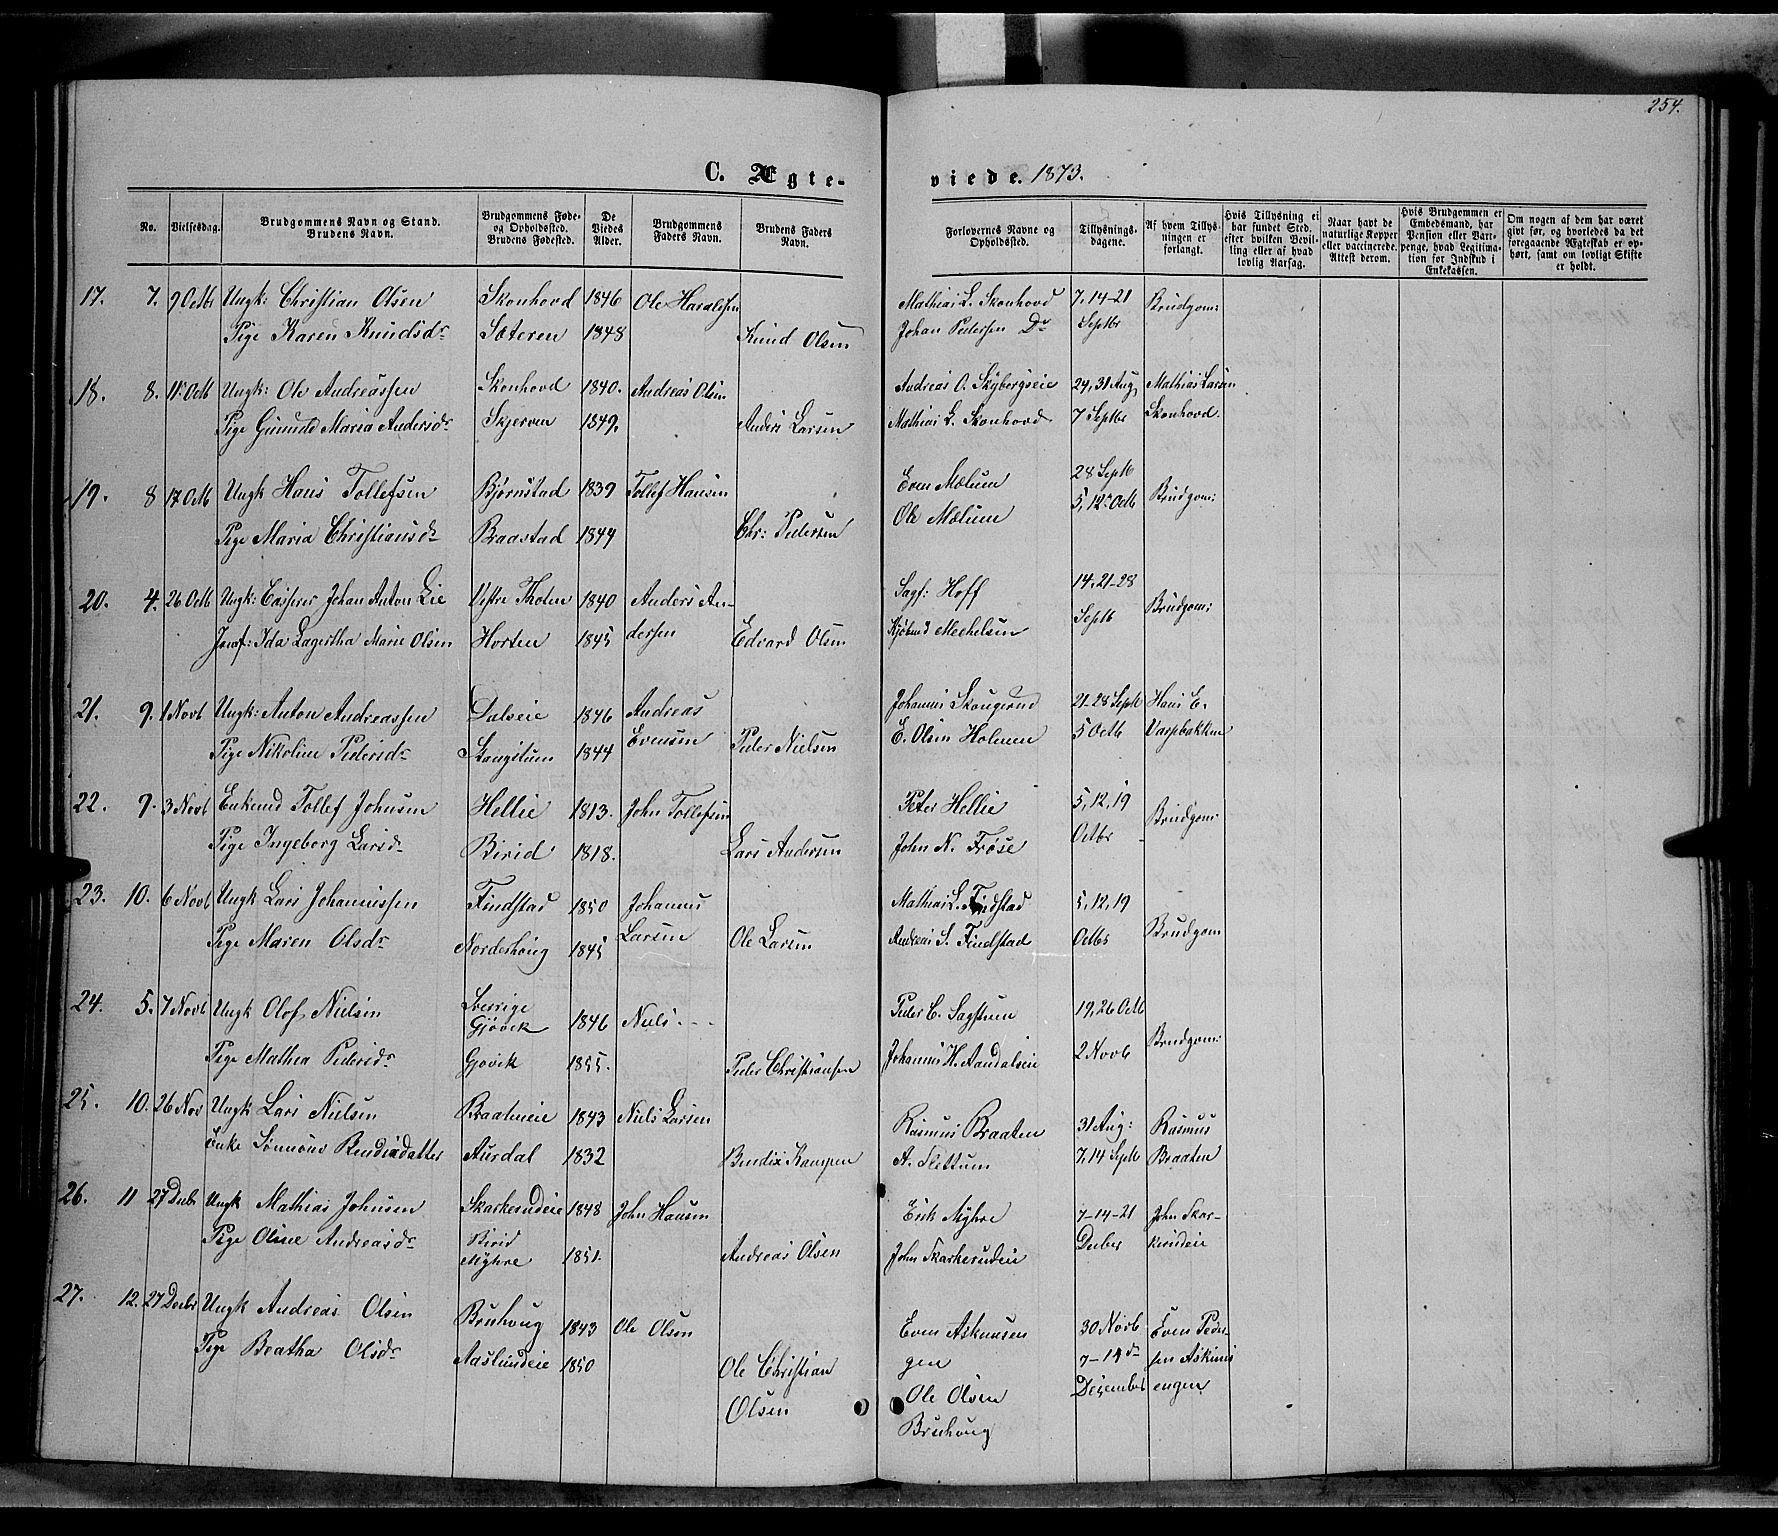 254.
C. Ægte-
viede. 1873.
No.
Vielsesdag.
Brudgommens Navn og Stand.
Brudens Navn.
Brudgommens Føde-
og Opholdssted.
Brudens Fødested.
De
Viedes
Alder.
Brudgommens
Faders Navn.
Brudens Faders
Navn.
Forlovernes Navne og
Opholdssted.
Tillysnings-
dagene.
Af hvem Tillys-
ningen er
forlangt.
Hvis Tillysning ei
har fundet Sted,
efter hvilken Bevil-
ling eller af hvad
lovlig Aarsag.
Naar havt de
naturlige Kopper
eller vaccinerede.
Attest derom.
Hvis Brudgommen er
Embedsmand, har
Pension eller Vart-
penge, hvad Legitima-
tion for Indskud i
Enkekassen.
Om nogen af dem har været
gift før, og hvorledes da det
foregaaende Ægteskab er op-
hørt, samt om lovligt Skifte
er holdt.
17. 7. 9 Octb Ungk: Christian Olsen Skonhovd 1846 Ole Haraldsen Mathias L. Skonhovd 7, 14-21 Brudgom:
Pige Karen Knudsdr Sæteren 1848 Knud Olsen Johan Pedersen Do Septbr
18. 8. 11 Octb Ungk: Ole Andreassen Skonhovd 1840. Andreas Olsen Andreas O. Skybergseie 24, 31 Aug, Mathias Larsen
Pige Gunild Maria Andersdr Skjerven 1849. Anders Larsen Mathias L. Skonhovd 7 Septbr Skonhovd.
19. 8 17 Octb Ungk Hans Tollefsen Bjørnstad 1839 Tollef Hansen Even Mælum 28 Septb Brudgom:
Pige Maria Christiansdr Braastad 1844 Chr: Pedersen Ole Mælum 5, 12 Octb
20. 4. 26 Octb Ungk: Casserer Johan Anton Lie Vestre Thoten 1840 Anders An- Sagf: Hoff 14, 21-28 Brudgom:
Jomf: Ida Lagertha Marie Olsen Horten 1845 dersen Edvard Olsen Kjøbmd Mechelsen Septb
21. 9. 1 Novb Ungk: Anton Andreassen Dalseie 1846 Andreas Johannes Skougerud 21-28 Septb Hans E.
Pige Nikoline Pedersdr Stangstuen 1844 Evensen Peder Nielsen E. Olsen Holmen 5 Octb Varpbakken
22. 9. 3 Novb Enkemd Tollef Johnsen Hellie 1813. John Tollefsen Peter Hellie 5, 12, 19 Brudgom:
Pige Ingeborg Larsdr Birid 1818. Lars Andersen John N. Frøse Octbr
23. 10. 6 Novb Ungk Lars Johannessen Findstad 1850 Johannes Mathias L. Findstad 5, 12, 19 Brudgom
Pige Maren Olsdr Norderhoug 1845 Larsen Ole Larsen Andreas S. Findstad Octbr
24. 5. 7 Novb Ungk Olof Nielsen Sverrige Gjøvik 1846 Niels - - - Peder C. Sagstuen 19, 26 Octb Brudgom:
Pige Mathea Pedersdr Gjøvik 1855. Peder Christiansen Johannes H. Aandalseie 2 Novb
25. 10. 26 Nov Ungk Lars Nielsen Braateneie 1843 Niels Larsen Rasmus Braaten 31 Aug: Rasmus
Enke Bendixdatter Aurdal 1832 Bendix Kampen A. Slettum 7, 14 Septb Braaten
26. 11 27 Decbr Ungk Mathias Johnsen Skarkerudeie 1848 John Hansen Erik Myhre 7-14-21 John Skar-
Pige Oline Andreasdr Birid Myhre 1851. Andreas Olsen John Skarkerudeie Decber kerudeie
27. 12. 27 Decbr Ungk Andreas Olsen Bruhoug 1843 Ole Olsen Even Askimsen 30 Novb Even Peder-
Pige Beatha Olsdr Aaslundeie 1850 Ole Christian gen 7-14 sen Askims
Olsen Ole Olsen Dezember engen
Bruhoug